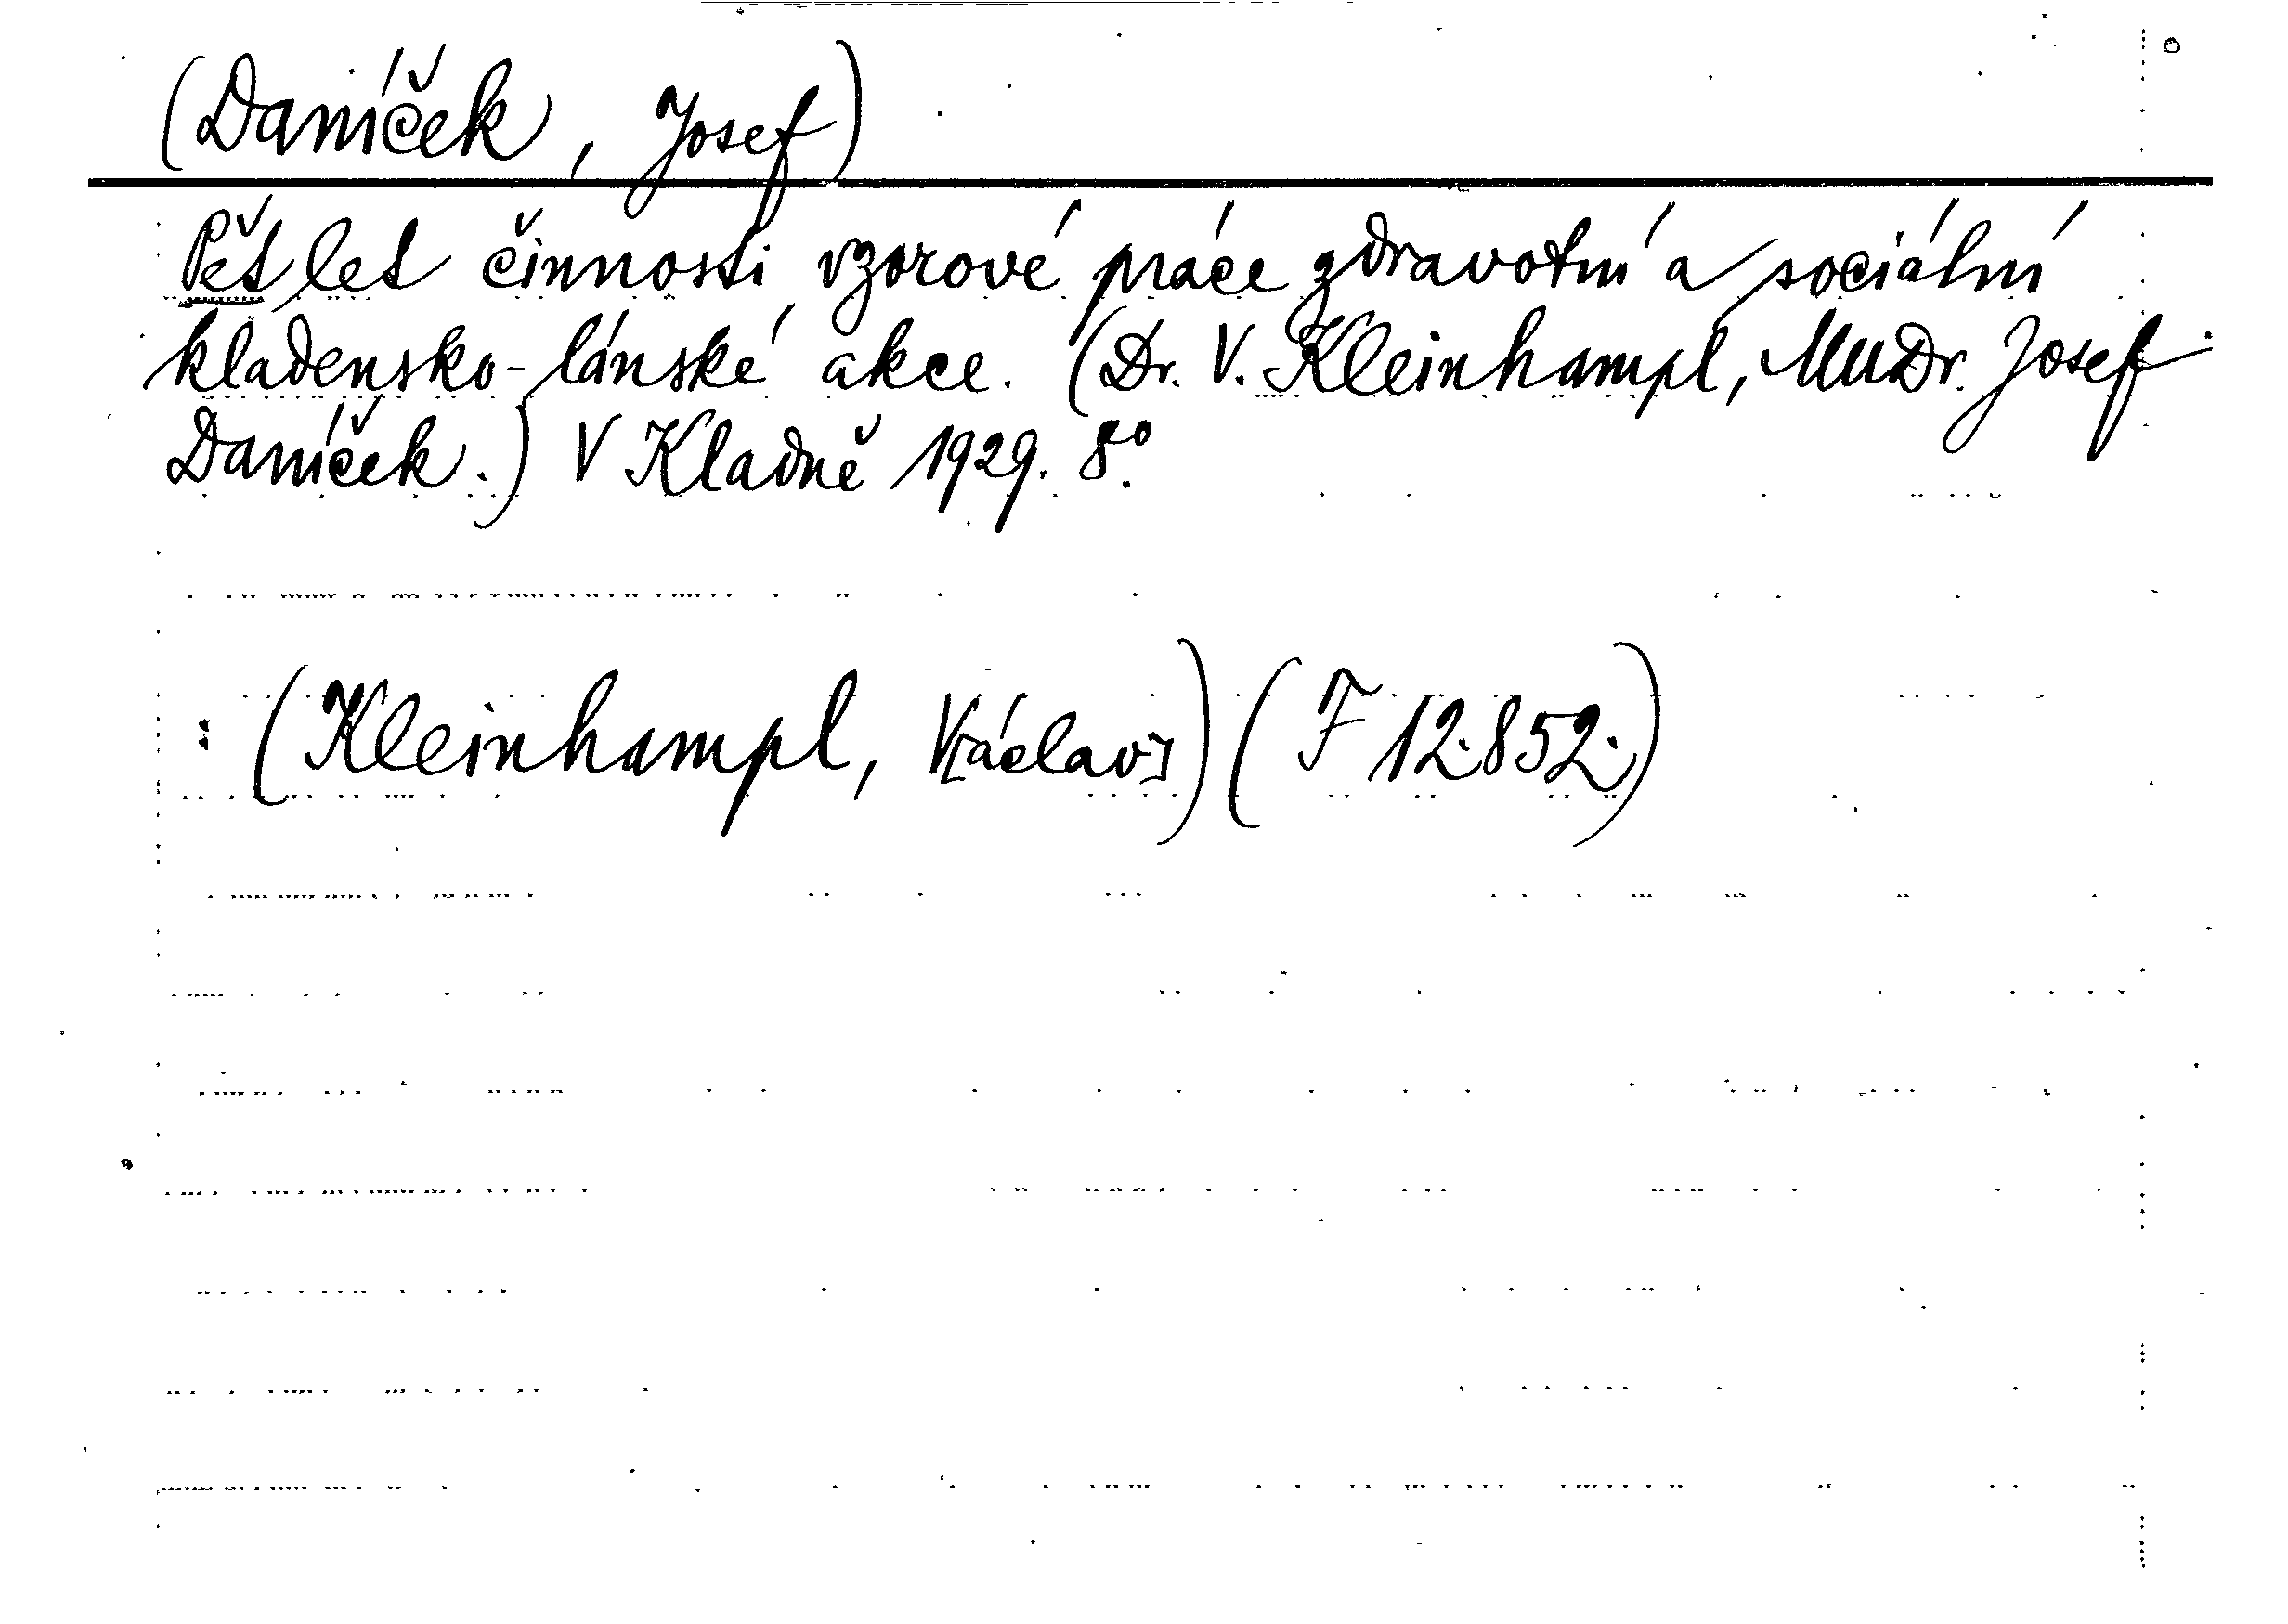 (Daníček, Josef)
Pět let činnosti vzorové práce zdravotní a sociální
kladensko-lánské akce. (Dr. V. Kleinhampl, MUDr. Josef
Daníček.) V Kladně 1929. 8º.
: (Kleinhampl, V[áclav]) (F 12.852.)